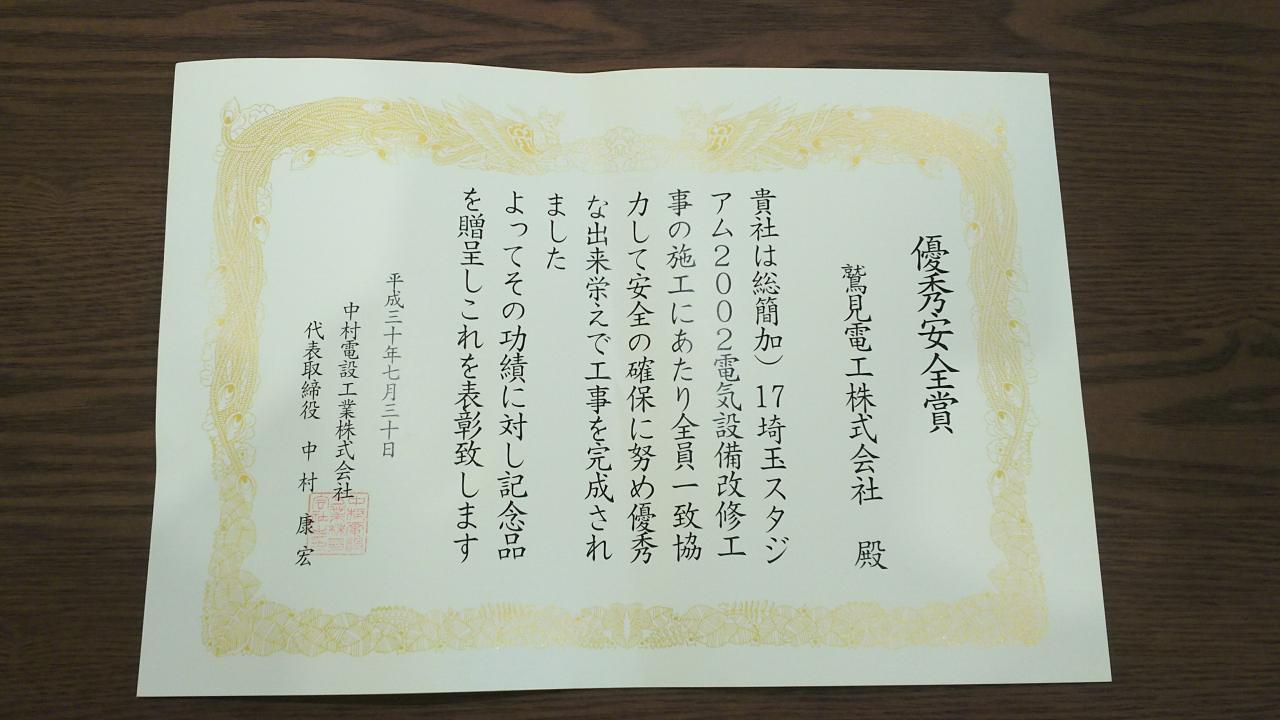 優秀安全賞
鷲見電工株式会社　殿
貴社は総簡加）17埼玉スタジ
アム２００２電気設備改修工
事の施工にあたり全員一致協
力して安全の確保に努め優秀
な出来栄えで工事を完成され
ました
よってその功績に対し記念品
を贈呈しこれを表彰致します
平成三十年七月三十日
中村電設工業株式会社
代表取締役　中村　康宏